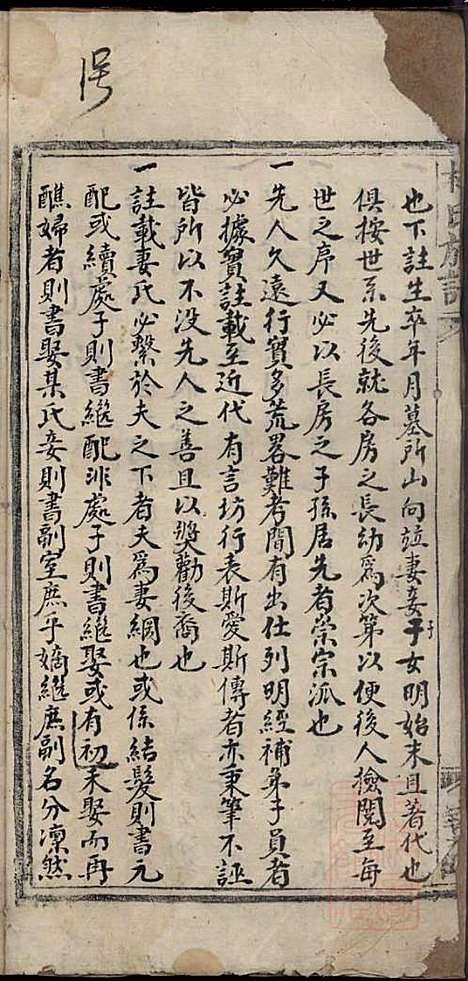 也下註生卒年月墓所山向竝妻妾子女明始末且著代也
俱按世系先後就各房之長幼為次第以便後人撿閱至每
世之序又必以長房之子孫居先者崇宗派也
一先人久遠行實多荒畧難考間有出仕列明經補弟子員者
必據實註載至近代有言坊行表斯愛斯傳者亦秉筆不誣
皆所以不没先人之善且以奬勸後裔也
一註載妻氏必繫於夫之下者夫爲妻綱也或係結髮則書元
配或續處子則書繼配非處子則書繼娶或有初未娶而再
醮婦者則書娶某氏妾則書副室庶乎嫡繼庶副名分凛然